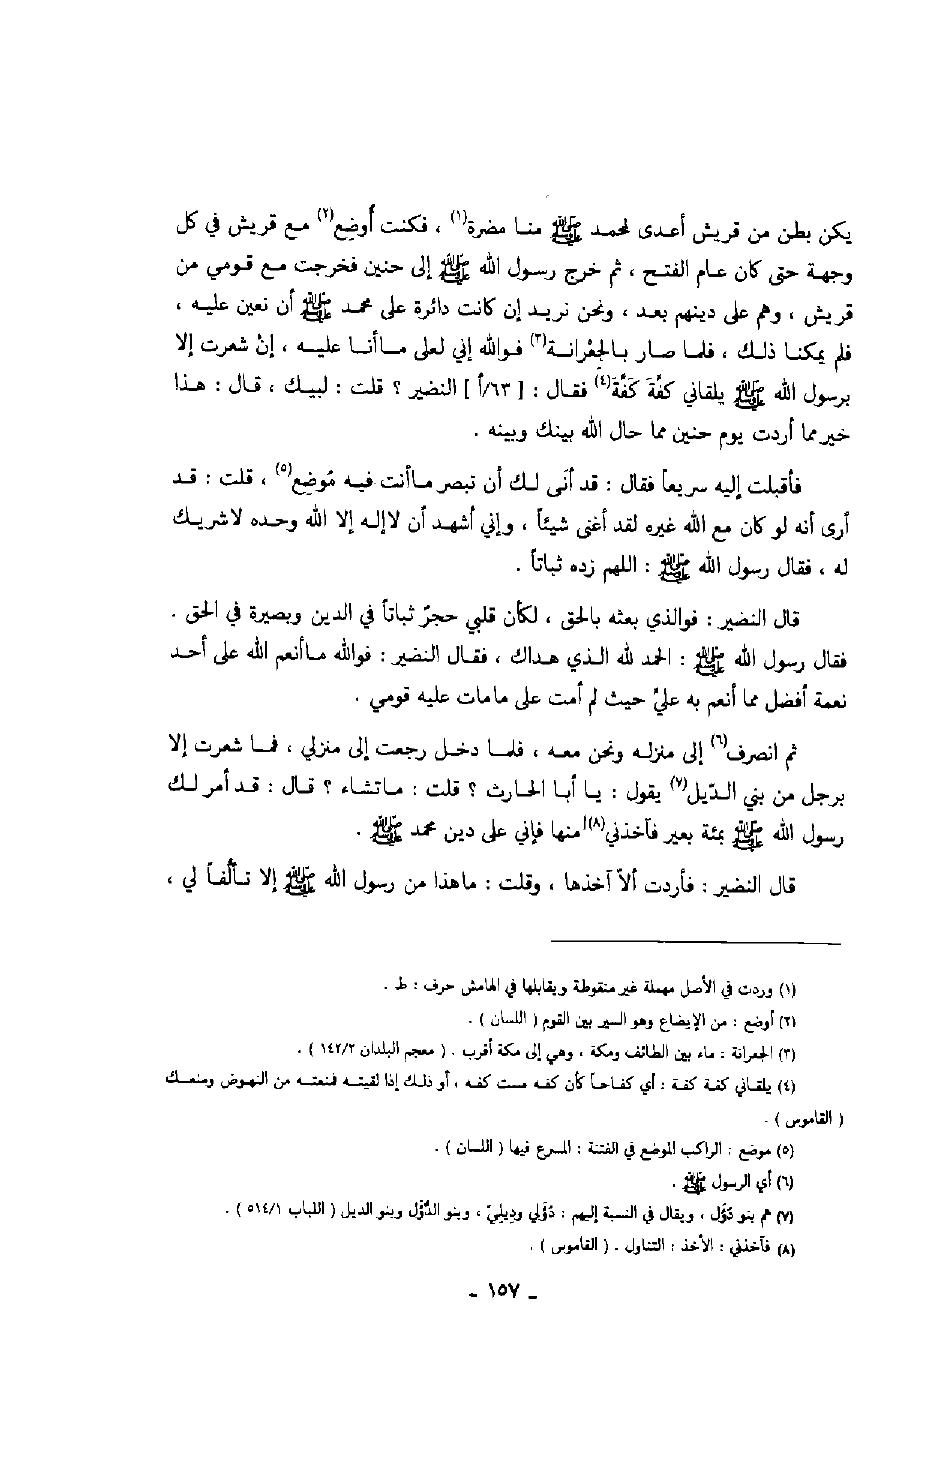 يكن بطن من قريش أعدى لمحمد ﷺ منا مضرة(١) ، فكنت أُوضِع(٢) مع قريش في كل
وجهة حتى كان عام الفتح ، ثم خرج رسول الله ﷺ إلى حنين فخرجت مع قومي من
قريش ، وهم على دينهم بعد ، ونحن نريد إن كانت دائرة على محمد ﷺ أن نعين عليه ،
فلم يمكنا ذلك ، فلما صار بالجِعْرانة(٣) فوالله إني لعلى ماأنا عليه ، إنْ شعرت إلا
برسول الله ﷺ يلقاني كَفَّةَ كَفَّةَ(٤) فقال : [ ٦٣/أ ] النضير ؟ قلت : لبيك ، قال : هذا
خير مما أردت يوم حنين مما حال الله بينك وبينه .
فأقبلت إليه سريعاً فقال : قد أَنَى لك أن تبصر ماأنت فيه مُوضِع(٥) ، قلت : قد
أرى أنه لو كان مع الله غيره لقد أغنى شيئاً ، وإني أشهد أن لاإله إلا الله وحده لاشريك
له ، فقال رسول الله ﷺ : اللهم زده ثباتاً .
قال النضير : فوالذي بعثه بالحق ، لكأن قلبي حجرٌ ثباتاً في الدين وبصيرة في الحق .
فقال رسول الله ﷺ : الحمد لله الذي هداك ، فقال النضير : فوالله ماأنعم الله على أحد
نعمة أفضل مما أنعم به عليّ حيث لم أمت على مامات عليه قومي .
ثم انصرف(٦) إلى منزله ونحن معه ، فلما دخل رجعت إلى منزلي ، فما شعرت إلا
برجل من بني الدّيل(٧) يقول : يا أبا الحارث ؟ قلت : ماتشاء ؟ قال : قد أمر لك
رسول الله ﷺ بمئة بعير فآخذني(٨) منها فإني على دين محمد ﷺ .
قال النضير : فأردت ألاّ آخذها ، وقلت : ماهذا من رسول الله ﷺ إلا تألّفاً لي ،
(١) وردت في الأصل مهملة غير منقوطة ويقابلها في الهامش حرف : ط .
(٢) أوضع : من الإيضاع وهو السير بين القوم ( اللسان ) .
(٣) الجعرانة : ماء بين الطائف ومكة ، وهي إلى مكة أقرب . ( معجم البلدان ١٤٢/٢ ) .
(٤) يلقاني كفة كفة : أي كفاحاً كأن كفه مست كفه ، أو ذلك إذا لقيته فنعته من النهوض ومنعك
( القاموس ) .
(٥) موضع : الراكب الموضع في الفتنة : المسرع فيها ( اللسان ) .
(٦) أي الرسول ﷺ .
(٧) هم بنو دُؤَل ، ويقال في النسبة إليهم : دُؤَلي ودِيليّ ، وبنو الدُّؤَل وبنو الديل ( اللباب ٥١٤/١ ) .
(٨) فآخذني : الأخذ : التناول . ( القاموس ) .
- ١٥٧ -